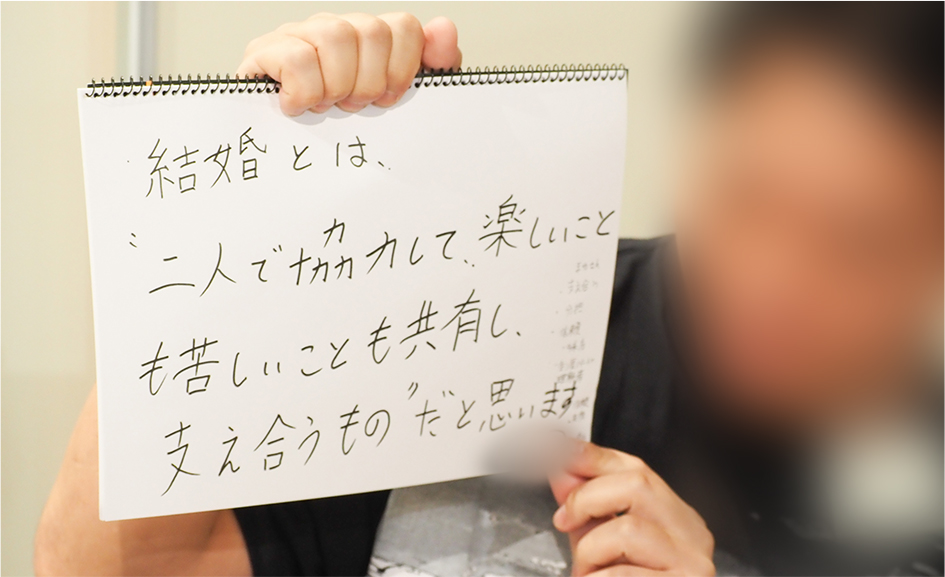 結婚とは、
〝二人で協力して、楽しいこと
も苦しいことも共有し、
支え合うもの〟だと思います